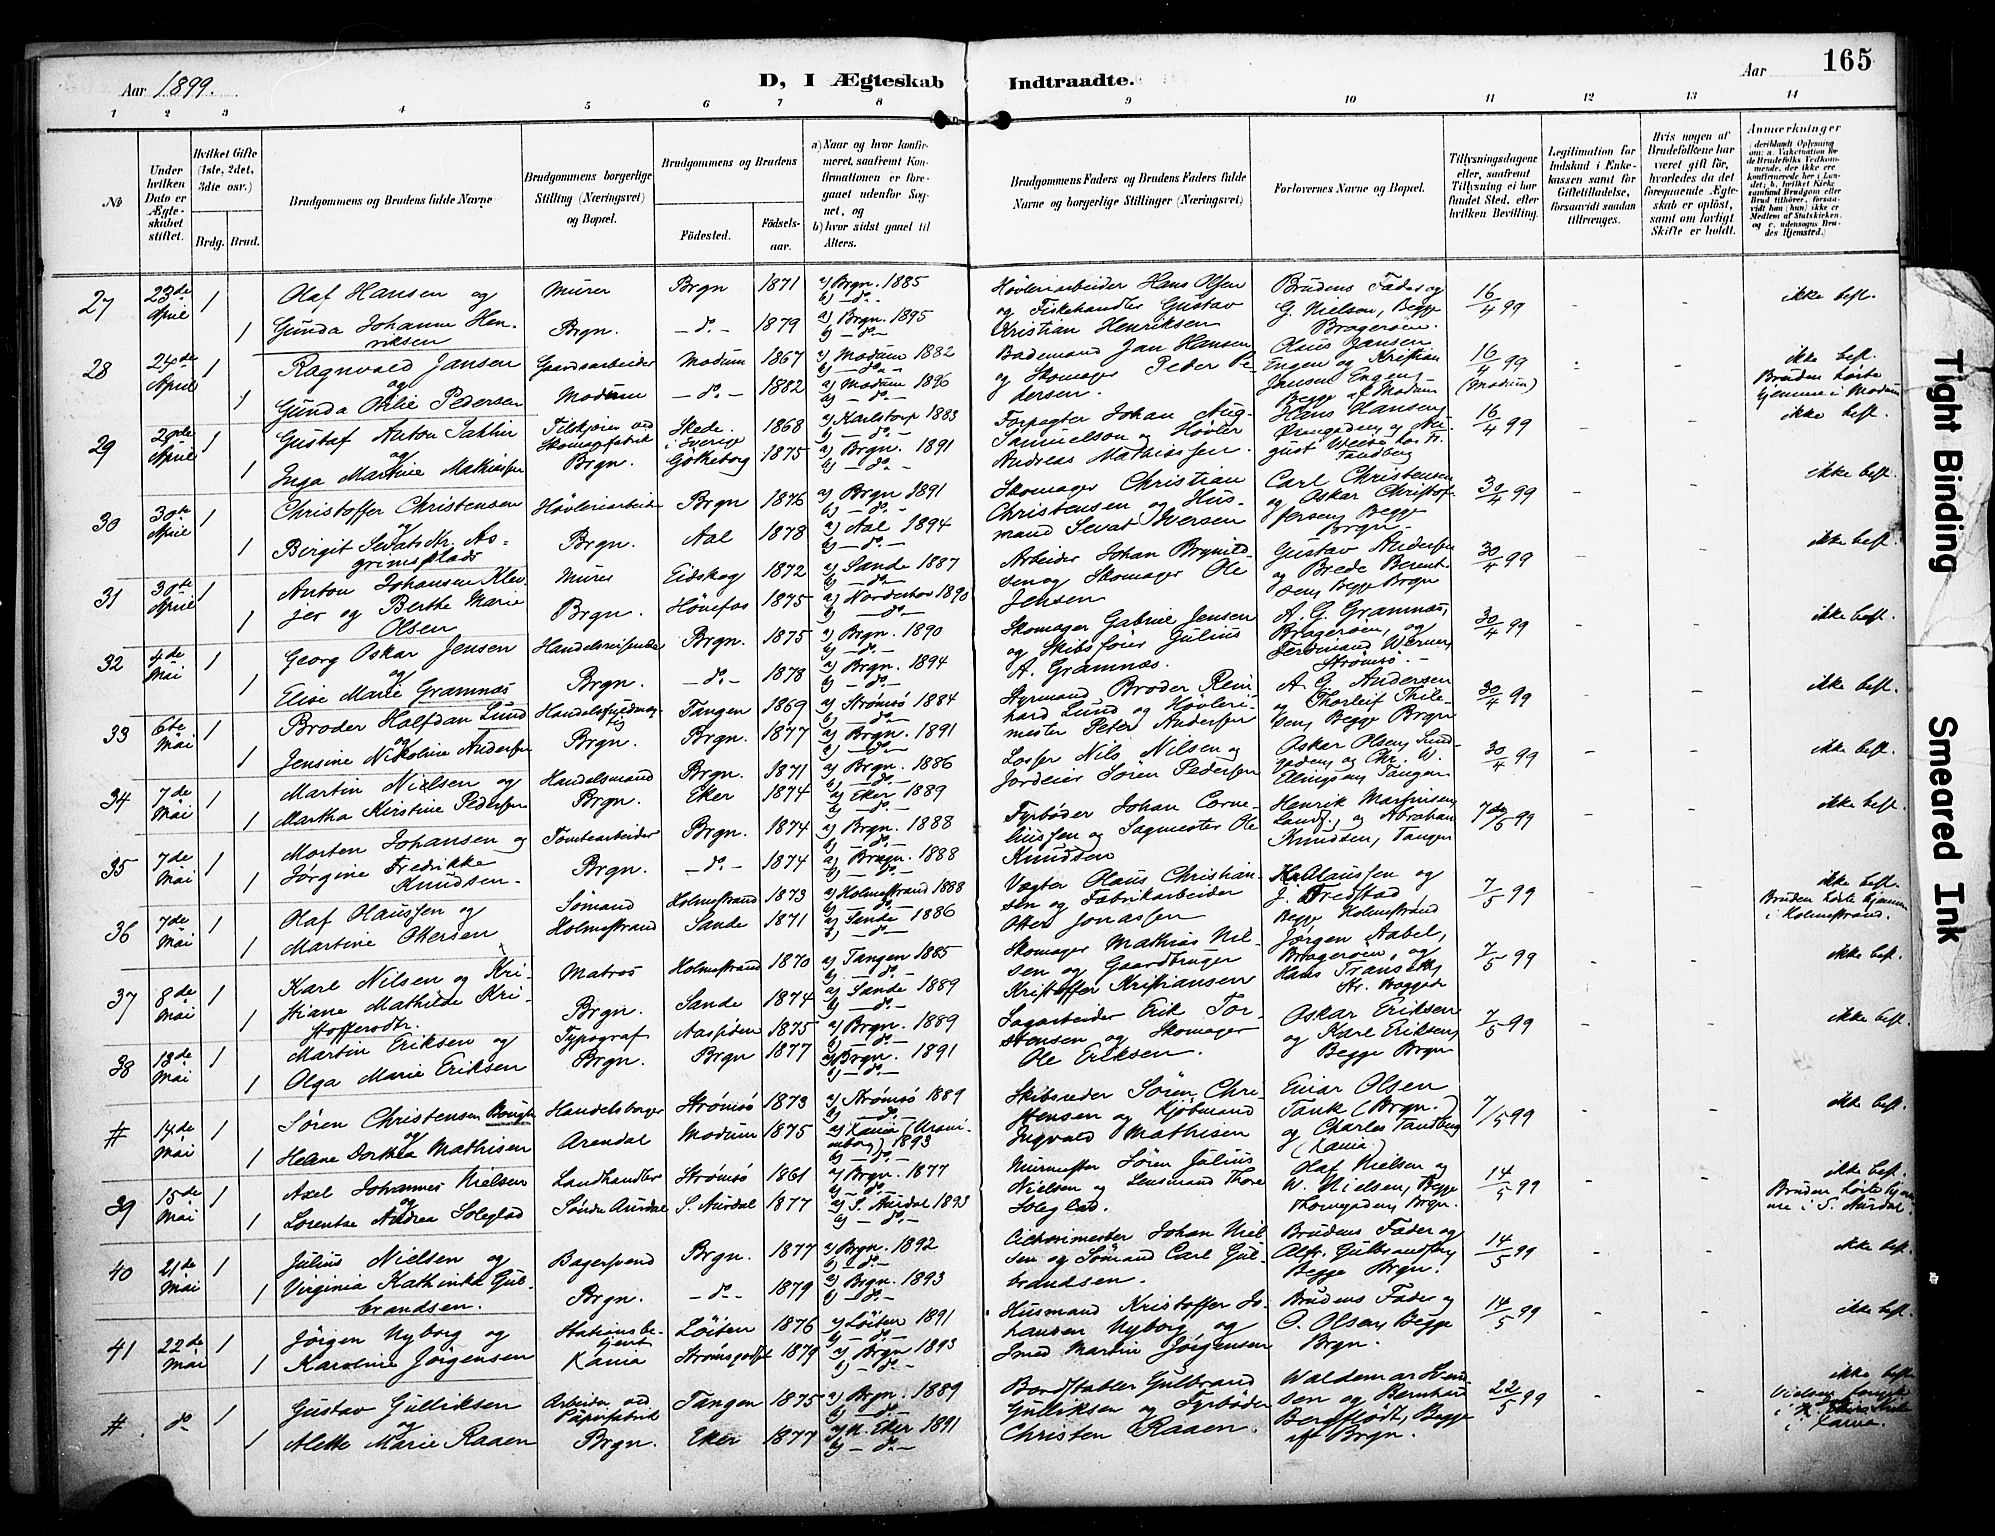 Aar 1899.
D, I Ægteskab Indtraadte.
Aar
165
1 2 3 4 5 6 7 8 9 10 11 12 13 14
No
Under hvilken Dato er Ægteskabet stiftet.
Hvilket Gifte (1ste, 2det, 3die osv.)
Brdg. Brud.
Brudgommens og Brudens fulde Navne
Brudgommens borgerlige Stilling (Næringsvei) og Bopæl.
Brudgommens og Brudens
Fødested. Fødselsaar.
a) Naar og hvor konfirmeret, saafremt Konfirmationen er foregaaet udenfor Sognet, og
b) hvor sidst gaaet til Alters.
Brudgommens Faders og Brudens Faders fulde Navne og borgerlige Stillinger (Næringsvei)
Forlovernes Navne og Bopæl.
Tillysningsdagene eller, saafremt Tillysning ei har fundet Sted, efter hvilken Bevilling.
Legitimation for Indskud i Enkekassen samt for Giftetilladelse, forsaavidt saadan tiltrænges.
Hvis nogen af Brudefolkene har været gift før, hvorledes da det foregaaende Ægteskab er opløst, samt om lovligt Skifte er holdt.
Anmærkninger
27 23de April 1 Olaf Hansen og Murer Brgn 1871 a) Brgn. 1885 b) — do — Høvleriarbeider Hans Olsen Brudens Fader og 16/4 99 ikke besl.
1 Gunda Johanne Henriksen Brgn. — do — 1879 a) Brgn. 1895 b) — do — og Fiskehandler Gustav Kristian Henriksen G. Nielsen, Begge Bragerøen.
28 24de April 1 Ragnvald Jansen og Gaardsarbeider Modum 1867 a) Modum 1882 b) — do — Bademand Jan Hansen Olaus Jansen Engen og Kristian 16/4 99 (Modum) ikke besl.
1 Gunda Otilie Pedersen Modum — do — 1882 a) Modum 1896 b) — do — og Skomager Peder Pedersen Jansen Engen, Begge af Modum Bruden hørte hjemme i Modum
29 29de April 1 Gustaf Anton Sahlin og Tilskjærer ved Skomagfabrik Skede i Sverige 1868 a) Karlstorp 1883 b) — do — Forpagter Johan Aug. Hans Hansen, 16/4 99 ikke besl.
1 Inga Martine Mathiassen Brgn. Göteborg 1875 a) Brgn. 1891 b) — do — Samuelson og Høvler Andreas Mathiassen.
30 30te April 1 Christoffer Christensen Høvleriarbeider Brgn 1876 a) Brgn 1891 b) — do — Skomager Christian Carl Christensen 30/4 99 ikke besl.
1 og Birgit Sevatsdtr. Asgrimsplads Brgn. Aal 1878 a) Aal 1894 b) — do — Christensen og Husmand Sevat Iversen og Oskar Christoffersen, Begge Brgn.
31 30te April 1 Anton Johansen Klevjer og Murer Eidskog 1872 a) Sande 1887 b) — do — Arbeider Johan Brynildsen og Gustav Andersen 30/4 99 ikke besl.
1 Berthe Marie Olsen Brgn. Hønefos 1875 a) Norderhov 1890 b) — do — Skomager Ole Jensen og Brede Berentsen, Begge Brgn
32 4de Mai 1 Georg Oskar Jensen og Handelsreisende Brgn. 1875 a) Brgn. 1890 b) — do — Skomager Gabriel Jensen A. G. Gramnæs, 30/4 99 ikke besl.
1 Elise Marie Gramnæs Brgn. — do — 1878 a) Brgn. 1894 b) — do — og Skibsfører Julius A. Gramnæs. Bragerøen, og Ferdinand Werner, Strømsø.
33 6te Mai 1 Broder Halfdan Lund og Handelsfuldmægtig Tangen 1869 a) Strømsø 1884 b) — do — Styrmand Broder Reinhard Lund og A. G. Andersen 30/4 99 ikke besl.
1 Jensine Nikoline Andersen Brgn. Brgn. 1877 a) Brgn. 1891 b) — do — Høvlerimester Peter Andersen og Thorleif Thilesen, Begge Brgn
34 7de Mai 1 Martin Nielsen og Handelsmand Brgn. 1871 a) Brgn. 1886 b) — do — Losser Nils Nilsen og Oskar Olsen, 30/4 99 ikke besl.
1 Martha Kirstine Pedersen Brgn. Eker 1874 a) Eker 1889 b) — do — Jordeier Søren Pedersen og Chr. W. Ellingsen, Tangen
35 7de Mai 1 Morten Johansen og Tomtearbeider Brgn. 1874 a) Brgn. 1888 b) — do — Fyrbøder Johan Corneliussen og Henrik Marthinsen, 7de/5 99 ikke besl.
1 Jørgine Fredrikke Knudsen. Brgn. — do — 1874 a) Bragn. 1888 b) — do — Sagmester Ole Knudsen Landf., og Abraham Knudsen, Tangen
36 7de Mai 1 Olaf Olaussen og Sømand Holmestrand 1873 a) Holmestrand 1888 b) — do — Vægter Olaus Christiansen og Kr. Claussen og 7/5 99 ikke besl.
1 Martine Ottersen Holmestrand Sande 1871 a) Sande 1886 b) — do — Fabrikarbeider Otter Jonassen J. Fredstad Begge Holmestrand Bruden hørte hjemme i Holmestrand.
37 8de Mai 1 Karl Nilsen og Matros Holmestrand 1870 a) Tangen 1885 b) — do — Skomager Mathias Nilsen og Jørgen Aabel, 7/5 99 ikke besl.
1 Kristiane Mathilde Kristofferdtr. Brgn. Sande 1874 a) Sande 1889 b) — do — Gaardbruger Kristoffer Kristiansen Bragerøen, og Hans
38 13de Mai 1 Martin Eriksen og Typograf 1875 a) Brgn. 1889 b) — do — Sagarbeider Erik Torstensen og Oskar Eriksen 7/5 99 ikke besl.
1 Olga Marie Eriksen Brgn. Brgn 1877 a) Brgn. 1891 b) — do — Skomager Ole Eriksen. og Karl Eriksen, Begge Brgn
# 14de Mai 1 Søren Christensen og Handelsborger Strømsø 1873 a) Strømsø 1889 b) — do — Skibsreder Søren Christensen og Einar Olsen Tank (Brgn.) 7/5 99 ikke besl.
1 Helene Dorthea Mathisen Arendal Modum 1875 a) Xania (Uranienborg) 1893 b) — do — Kjøbmand Ingvald Mathisen og Charles Tandberg (Xania)
39 15de Mai 1 Axel Johannes Nielsen og Landhandler Strømsø 1861 a) Brgn. 1877 b) — do — Murmester Søren Julius Nielsen og Olaf Nielsen og 14/5 99 ikke besl.
1 Lorentse Andrea Soleglad Søndre Aurdal S. Aurdal 1877 a) S. Aurdal 1893 b) — do — Lensmand Thore Soleglad. W. Nielsen, Begge Thomgaden, Brgn. Bruden hørte hjemme i S. Aurdal.
40 21de Mai 1 Julius Nielsen og Bagersvend Brgn. 1877 a) Brgn. 1892 b) — do — Cichorimester Johan Nielsen og Brudens Fader og 14/5 99 ikke besl.
1 Virginia Kathinka Gulbrandsen. Brgn. — do — 1879 a) Brgn. 1893 b) — do — Sømand Carl Gulbrandsen. Alfr. Gulbrandsen, Begge Brgn.
41 22de Mai 1 Jørgen Nyborg og Stationsbetjent Løiten 1876 a) Løiten 1891 b) — do — Husmand Kristoffer Johansen Nyborg og Brudens Fader og 14/5 99 ikke besl.
1 Karoline Jørgensen Xania Strømsgodset 1879 a) Brgn 1893 b) — do — Smed Martin Jørgensen O. Olsen, Begge Brgn.
# do 1 Gustav Gulliksen og Arbeider ved Papirfabrik Tangen 1875 a) Brgn. 1889 b) — do — Bordstabler Gulbrand Gulliksen og Waldemar 22/5 99 ikke besl.
1 Alette Marie Raaen Brgn. Eker 1877 a) N. Eker 1891 b) — do — Fyrbøder Christen Raaen. og Bernhard Bergflødt, Begge af Brgn.
Tight Binding Smeared Ink